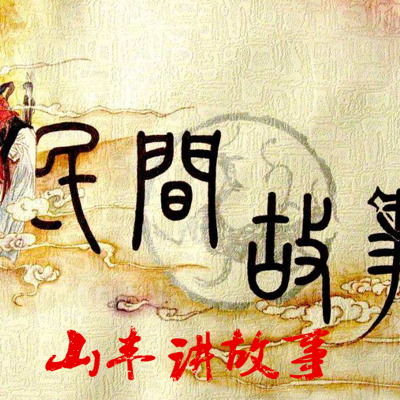 民間故事
山丰讲故事